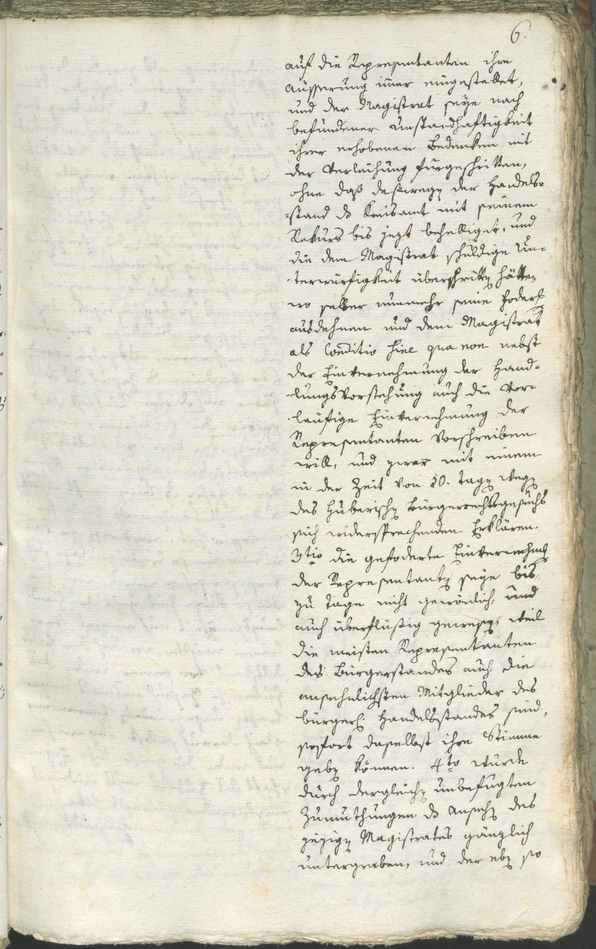 6.
auf die Representanten ihre
äusserung imer eingestellet,
und der Magistrat seye nach
befundener Unstandhaftigkeit
ihrer erhobenen Bedenken mit
der Verleihung fürgeschritten,
ohne daß deswegen der Handels-
stand ds Kreisamt mit seinem
Rekurs bis jezt behelliget, und
die dem Magistrat schuldige Un-
terwürfigkeit überschritten hätte,
wo selber nunmehr seine
ausdehnen und dem Magistrat
als Conditio sine qua non nebst
der Einvernehmung der Hand-
lungsVorstehung auch die Vor-
läufige Einvernehmung der
Representanten Vorschreiben
will, und zwar mit einem
in der Zeit von 10. Tagen wegen
des Huberischen Bürgerrechtsgesuchs
sich widersprechenden Erklären.
3tio die geforderte Einvernehmung
der Representanten seye bis
zu tage nicht gewönlich, und
auch überflüßig gewesen, weil
die meisten Representanten
des Bürgerstandes auch die
ansehnlichsten Mitglieder des
bürgerl: Handelsstandes sind,
sofort daselbst ihre Stimme
geben können. 4to wurde
durch dergleichen unbefugten
Zumuthungen ds Ansehen des
hiesigen Magistrates gänzlich
untergraben, und der eben so